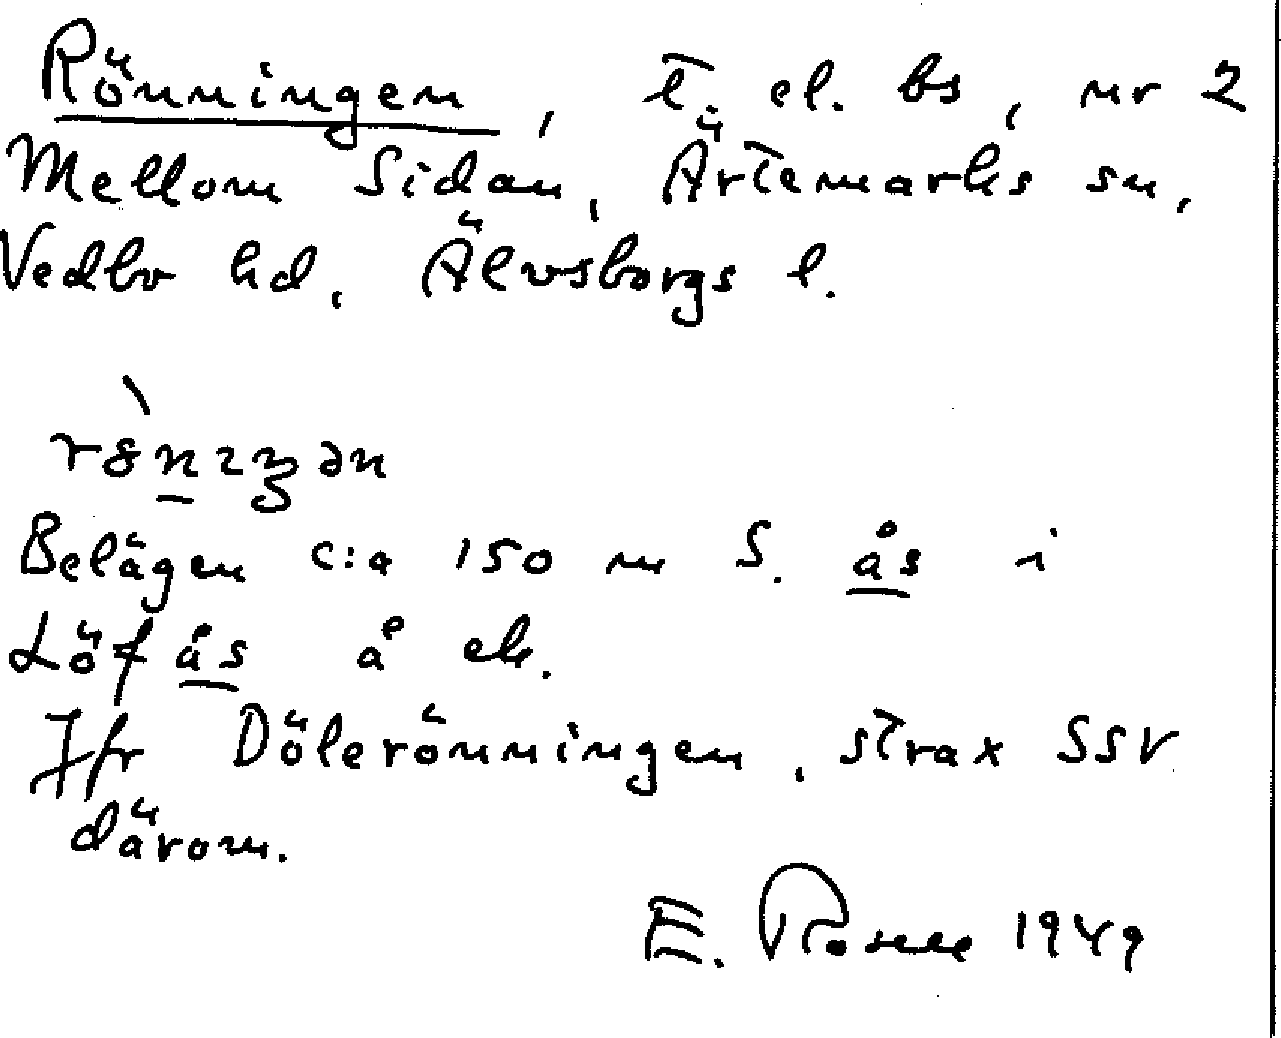 Rönningen, t. el. bs, nr 2
Mellom Sidan, Ärtemarks sn,
Vedbo hd, Älvsborgs l.
Belägen c:a 150 m S. ås i
Löfås å ek.
Jfr Dölerönningen, strax SSV
därom.
E. 1949